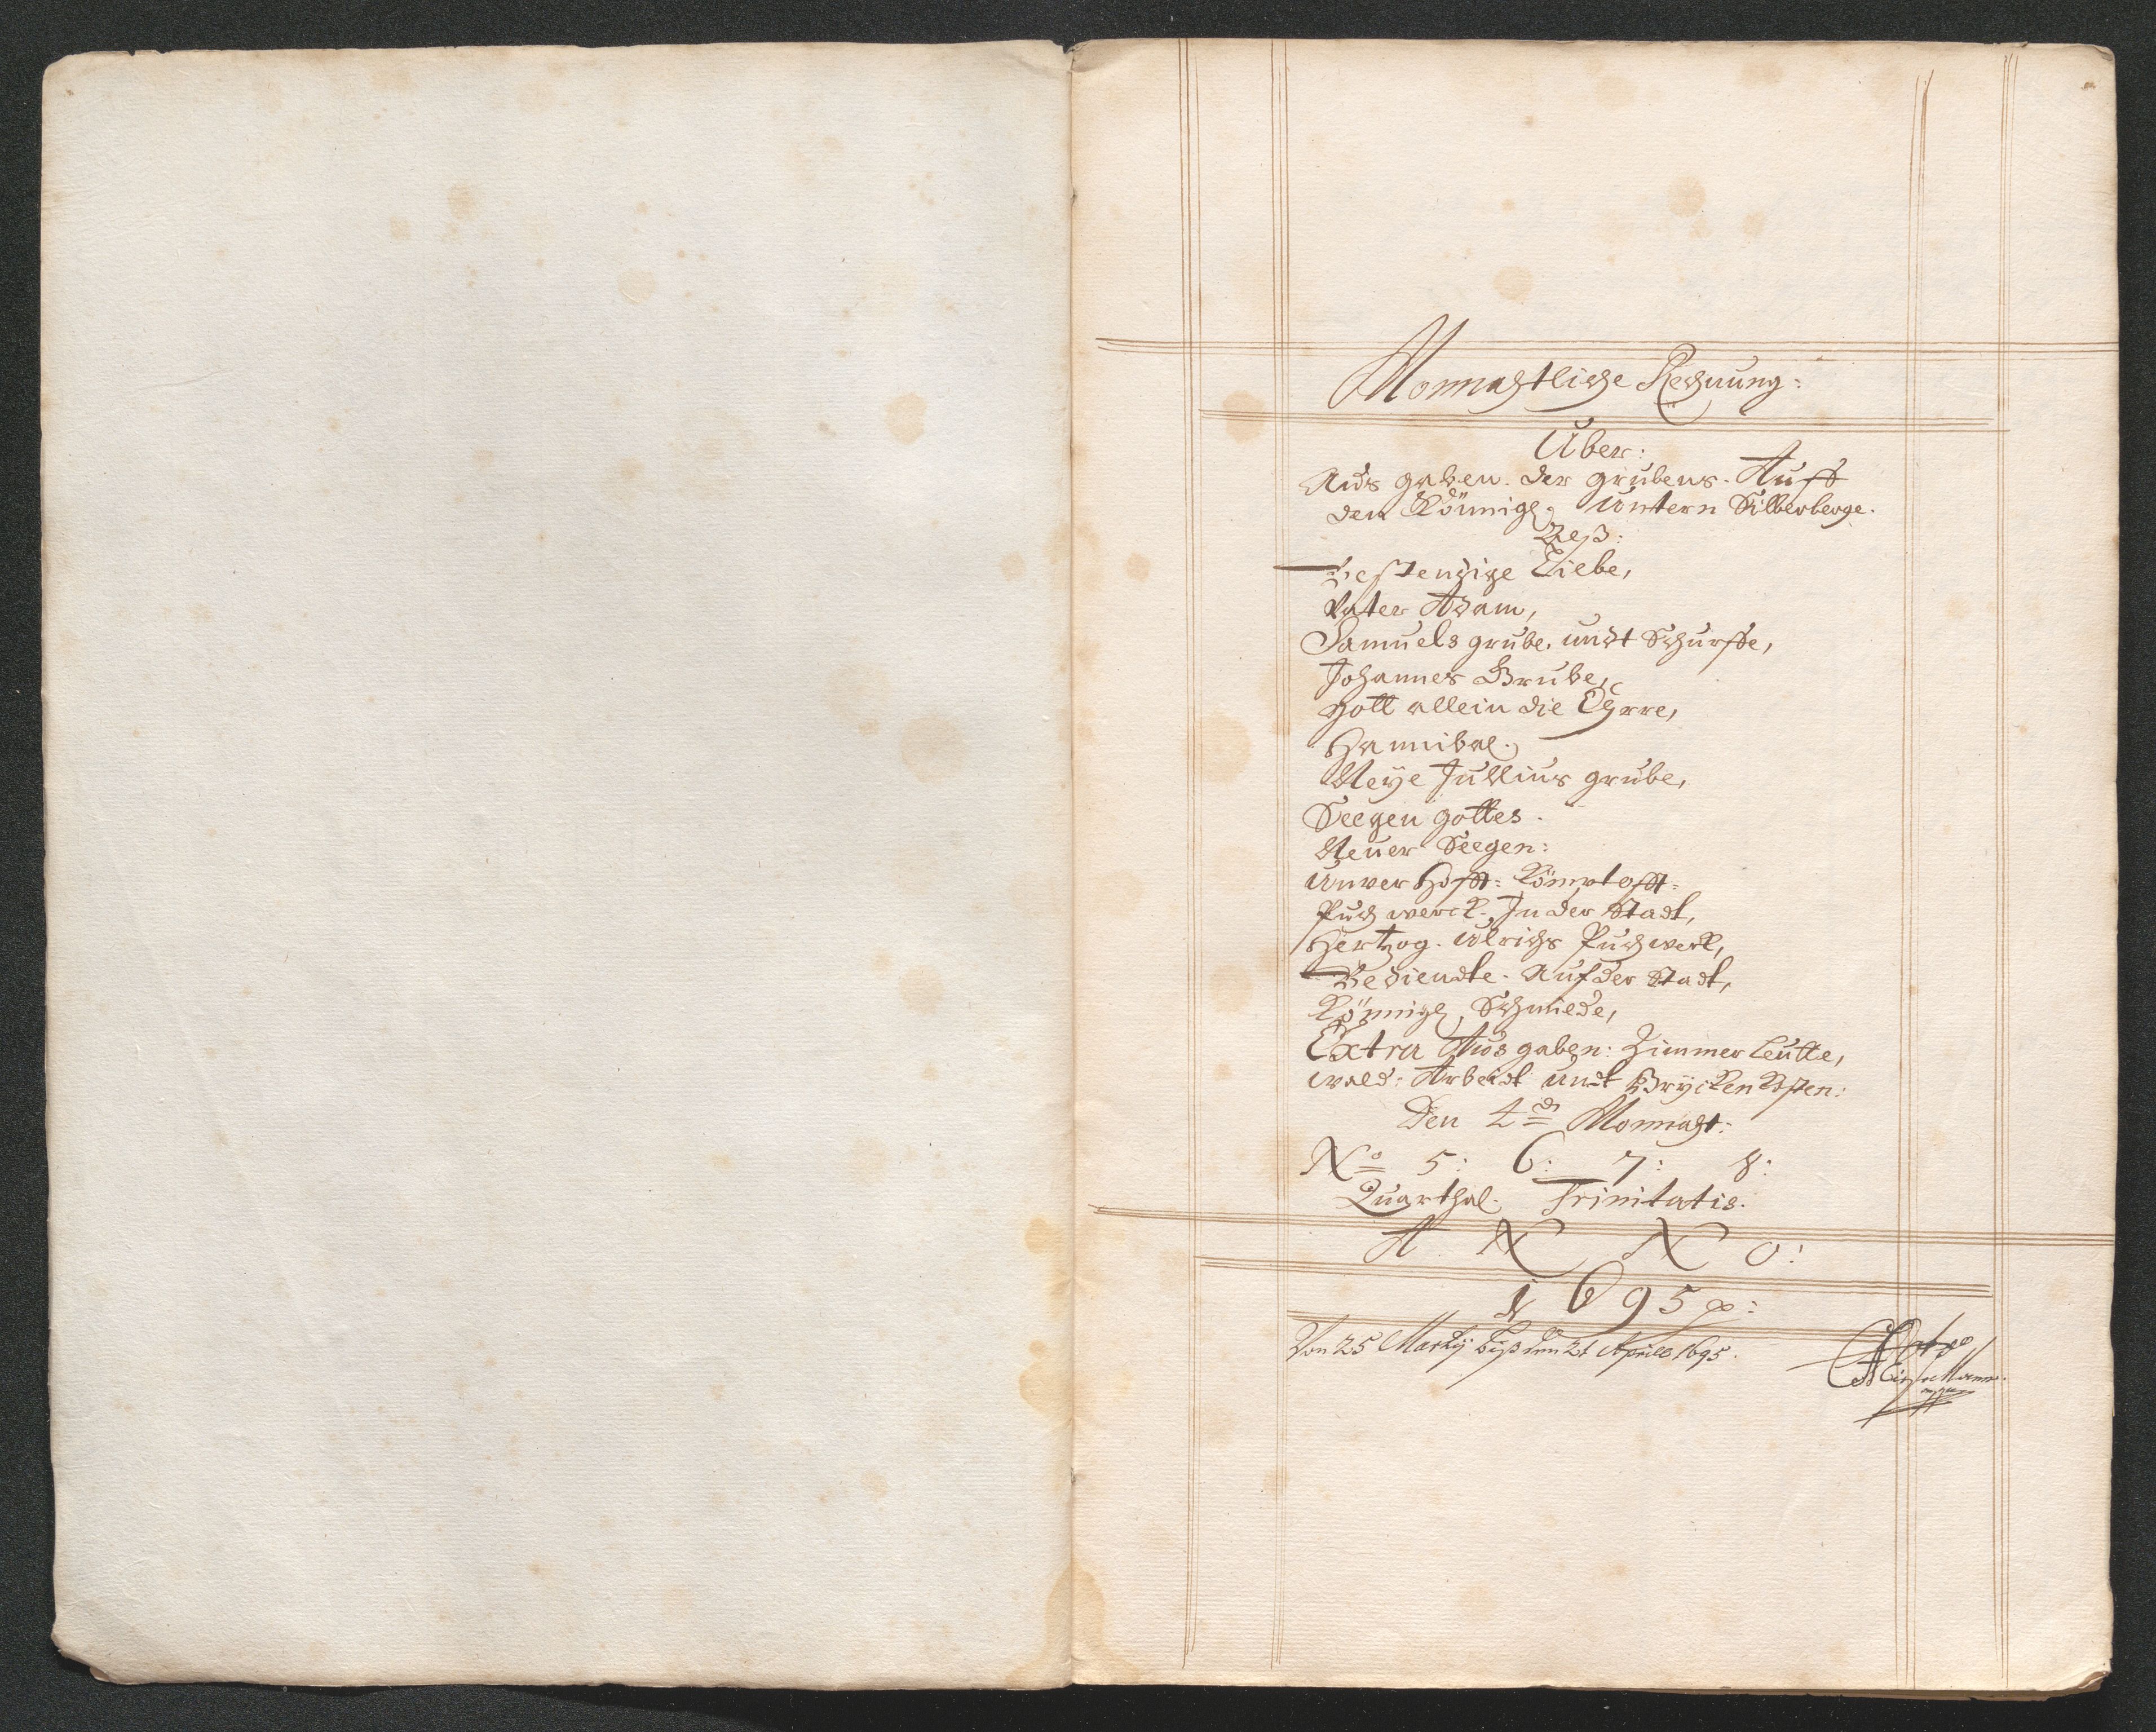 Monnahtliche Rechnung:
Über:
Aus gaben. der grubens. Auff
den Könnigl. Untern Silberberge.
Beständige Liebe,
Vater Adam,
Samuels grube. undt Schurffe,
Johannes Grube,
Gott allein die Ehrre,
Hannibal.
Neye Jullius grube,
Seegen gottes.
Neuer Seegen:
Unver hofft: Kömpt offt:
Puch werck. In der Stadt,
Hertzog. Ulrichs Puchwerk,
Bediendte. Auf der Stadt,
Könnigl. Schmiede,
Extra Aus gaben: Zimmer leutte,
wald: Arbeidt undt Brycken Kosten:
Den Monnaht:
No 5: 6: 7: 8:
Quarthal. Trinitatis.
A N N O:
1695
Von 25 Martij biß den 21 Aprill 1695.